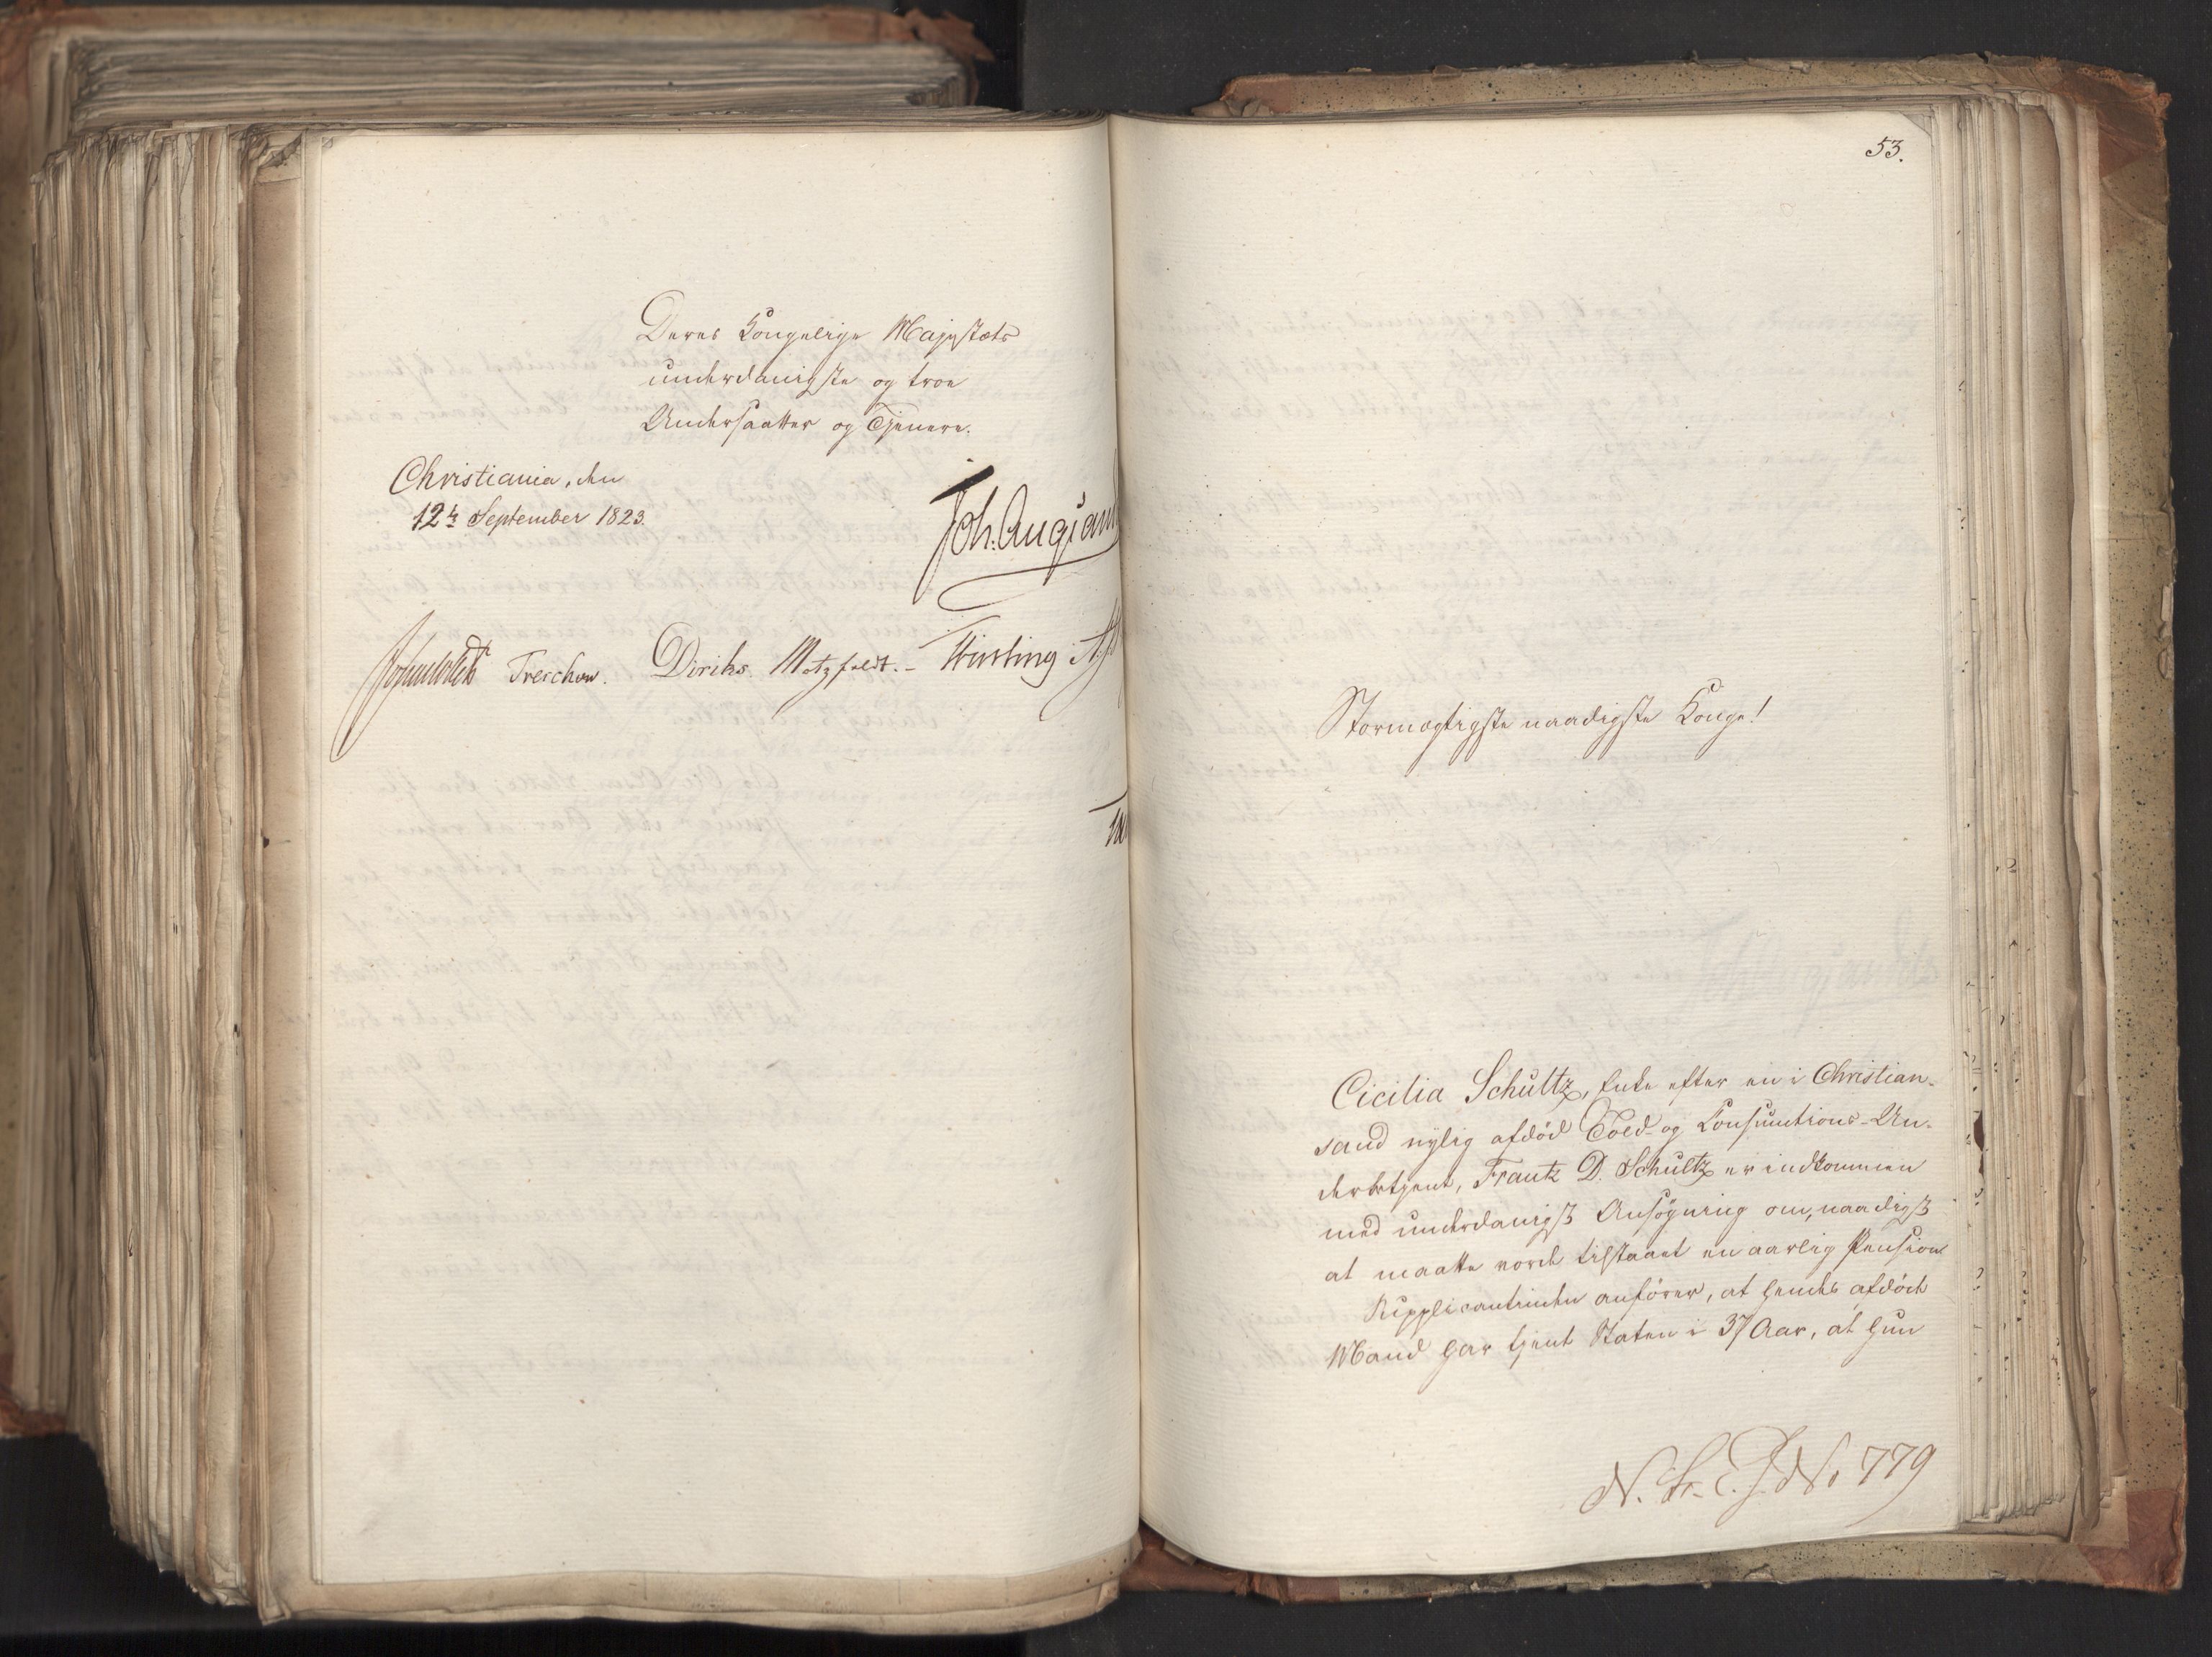 Deres Kongelige Majestæts
underdanigste og troe
Undersaatter og Tjenere.
Christiania, den
12te September 1823.
Joh. Aug: Sand
Treschow. Diriks. Motzfeldt.
53.
Stormægtigste naadigste Konge!
Cicilia Schultz, Enke efter en i Christian-
sand nylig afdød Told- og Consumtions-Un-
derbetjent, Frantz D. Schultz er indkommen
med underdanigst Ansøgning om, naadigst
at maatte vorde tilstaaet en aarlig Pension
Supplicantinden anfører, at hendes afdøde
Mand har tjent Staten i 37 Aar, at hun
No 779